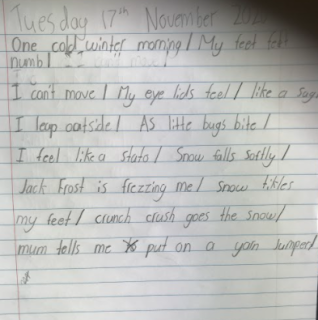 Tuesday 17th November
One cold winter morning / My feet felt
numb /
I can't move / My eye lids feel / like a
I leap oatside / As litte bugs bite /
I feel like a stato / Snow falls softly /
Jack Frost is frezzing me / Snow tikles
my feet / crunch crush goes the snow /
mum tells me to put on a yarn Jumper /